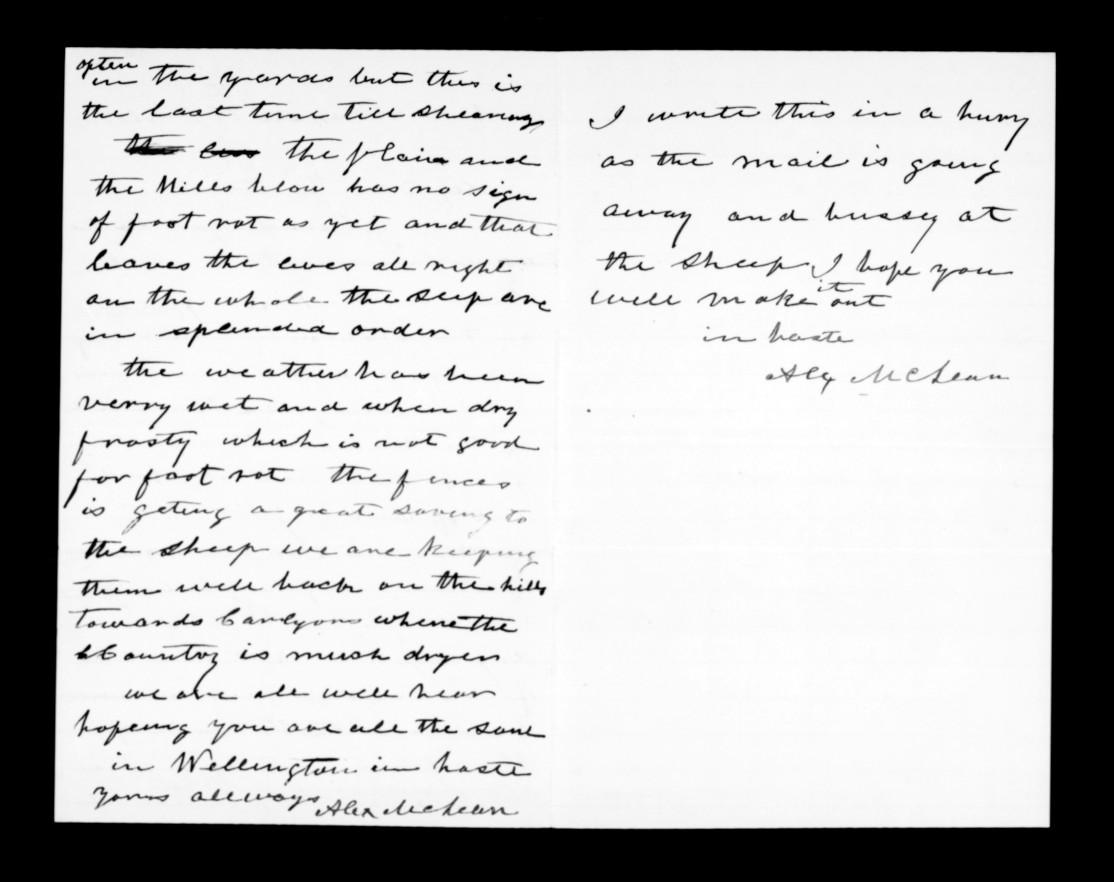 often
in the yards but this is
the last time till shearing
the ews the plain and
the Hills blow has no sign
of foot rot as yet and that
leaves the ewes all right
on the whole the seep are
in splended order
the weather has been
verry wet and when dry
frosty which is not good
for foot rot the fences
is geting a great saving to
the sheep we are keeping
them well back on the hills
towards Carlyons where the
Country is much dryer
we are all well hear
hopeing you are all the same
in Wellington in haste
yours allways Alex McLean
I write this in a hurry
as the mail is going
away and bussey at
the sheep I hope you
will make it out
in haste
Alex McLean